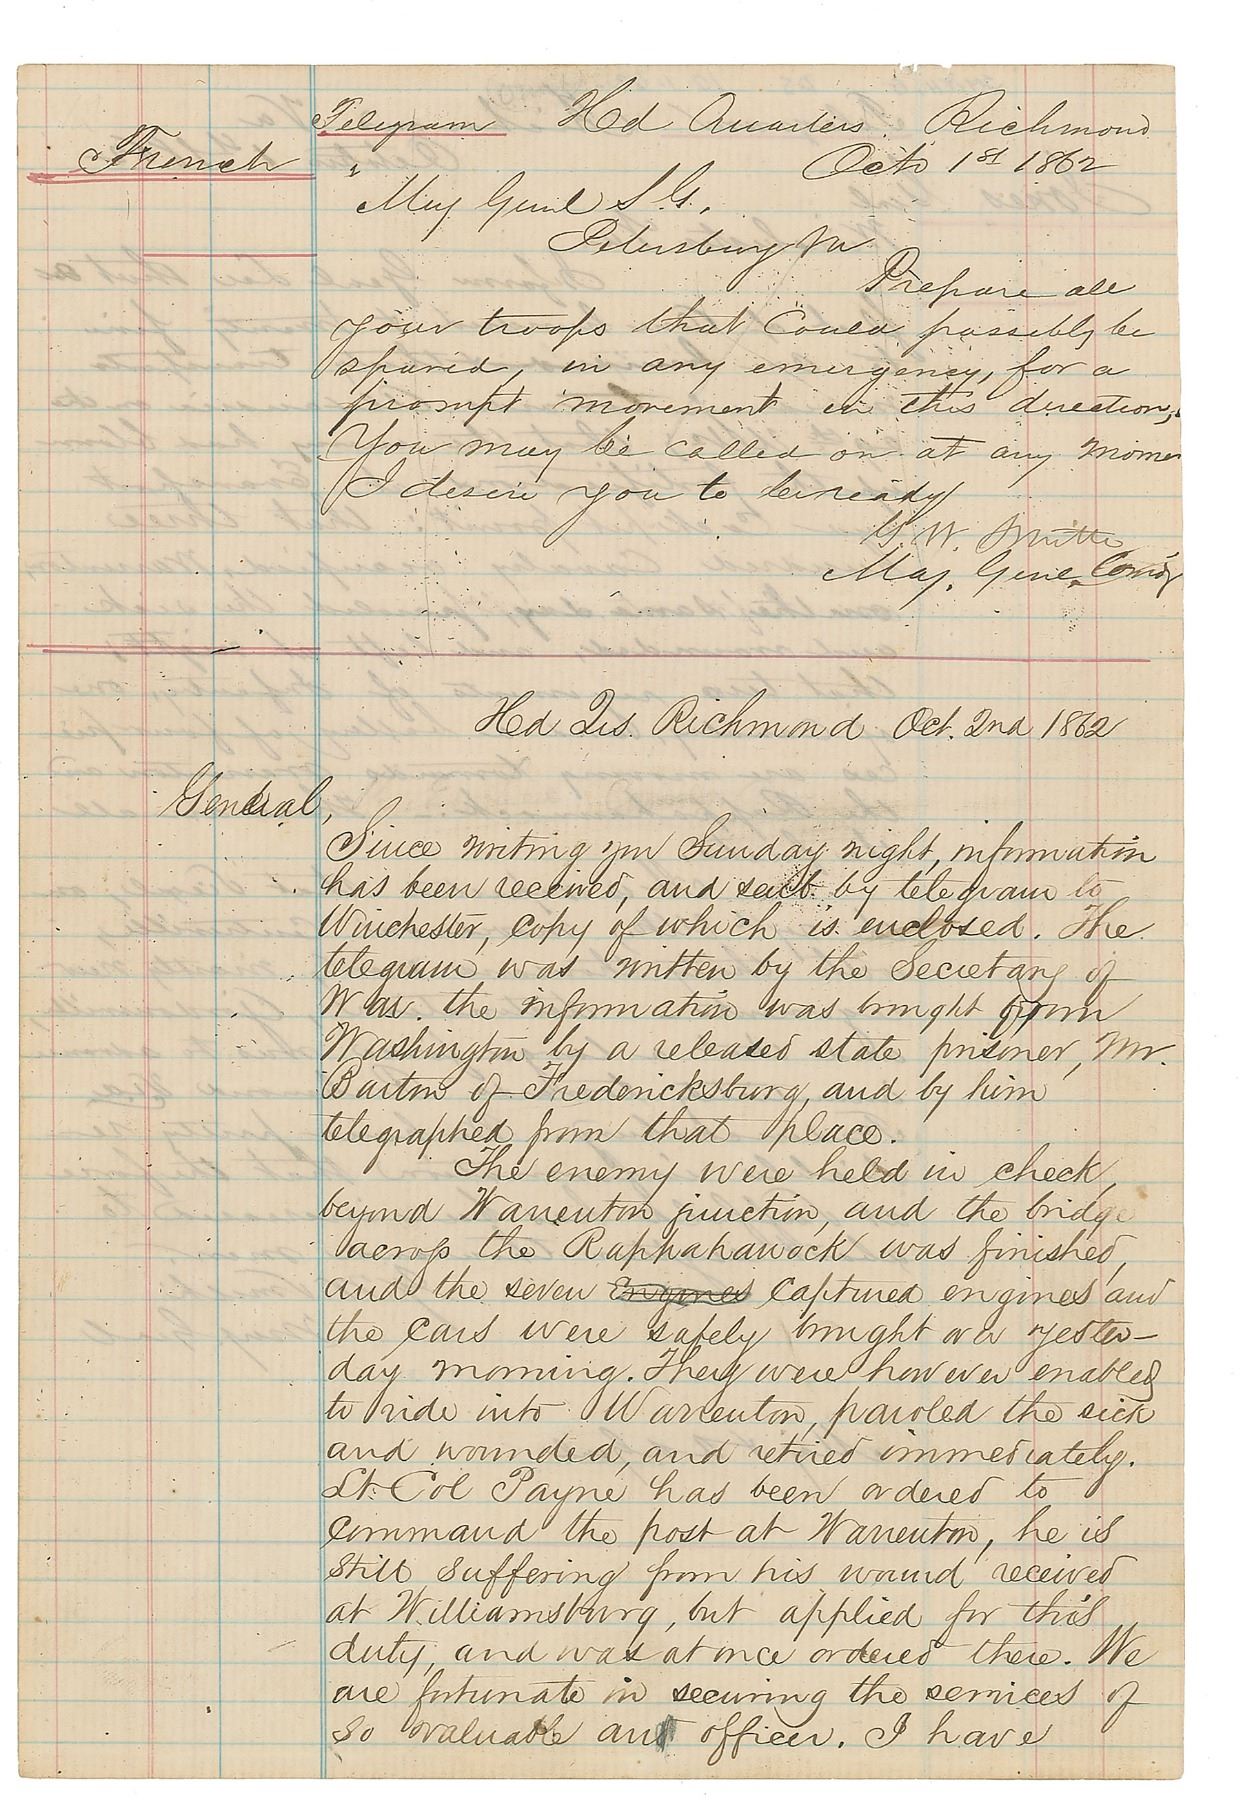 Telegram Hd Quarters. Richmond
Octo 1st 1862
French
" Maj Genl S. G.,
Petersburg Va
Prepare all
your troops that Could possibly be
spared, in any emergency, for a
prompt movement in this direction,
You may be called on at any mome
I desire you to be ready
G. W. Smith
Maj. Genl. Comdg
Hd Qrs. Richmond Oct. 2nd 1862
General,
Since writing you Sunday night, information
has been received, and sent by telegram to
Winchester, copy of which is enclosed. The
telegram was written by the Secretary of
War. the information was brought from
Washington by a released state prisoner, Mr.
Barton of Fredericksburg, and by him
telegraphed from that place.
The enemy were held in check,
beyond Warrenton junction, and the bridge
across the Rappahanock was finished,
and the seven Engines captured engines and
the cars were safely brought over yester-
day morning. They were however enabled
to ride into Warrenton, paroled the sick
and wounded, and retired immediately.
Lt. Col Payne has been ordered to
command the post at Warrenton, he is
still suffering from his wound received
at Williamsburg, but applied for this
duty, and was at once ordered there. We
are fortunate in securing the services of
so valuable an officer. I have